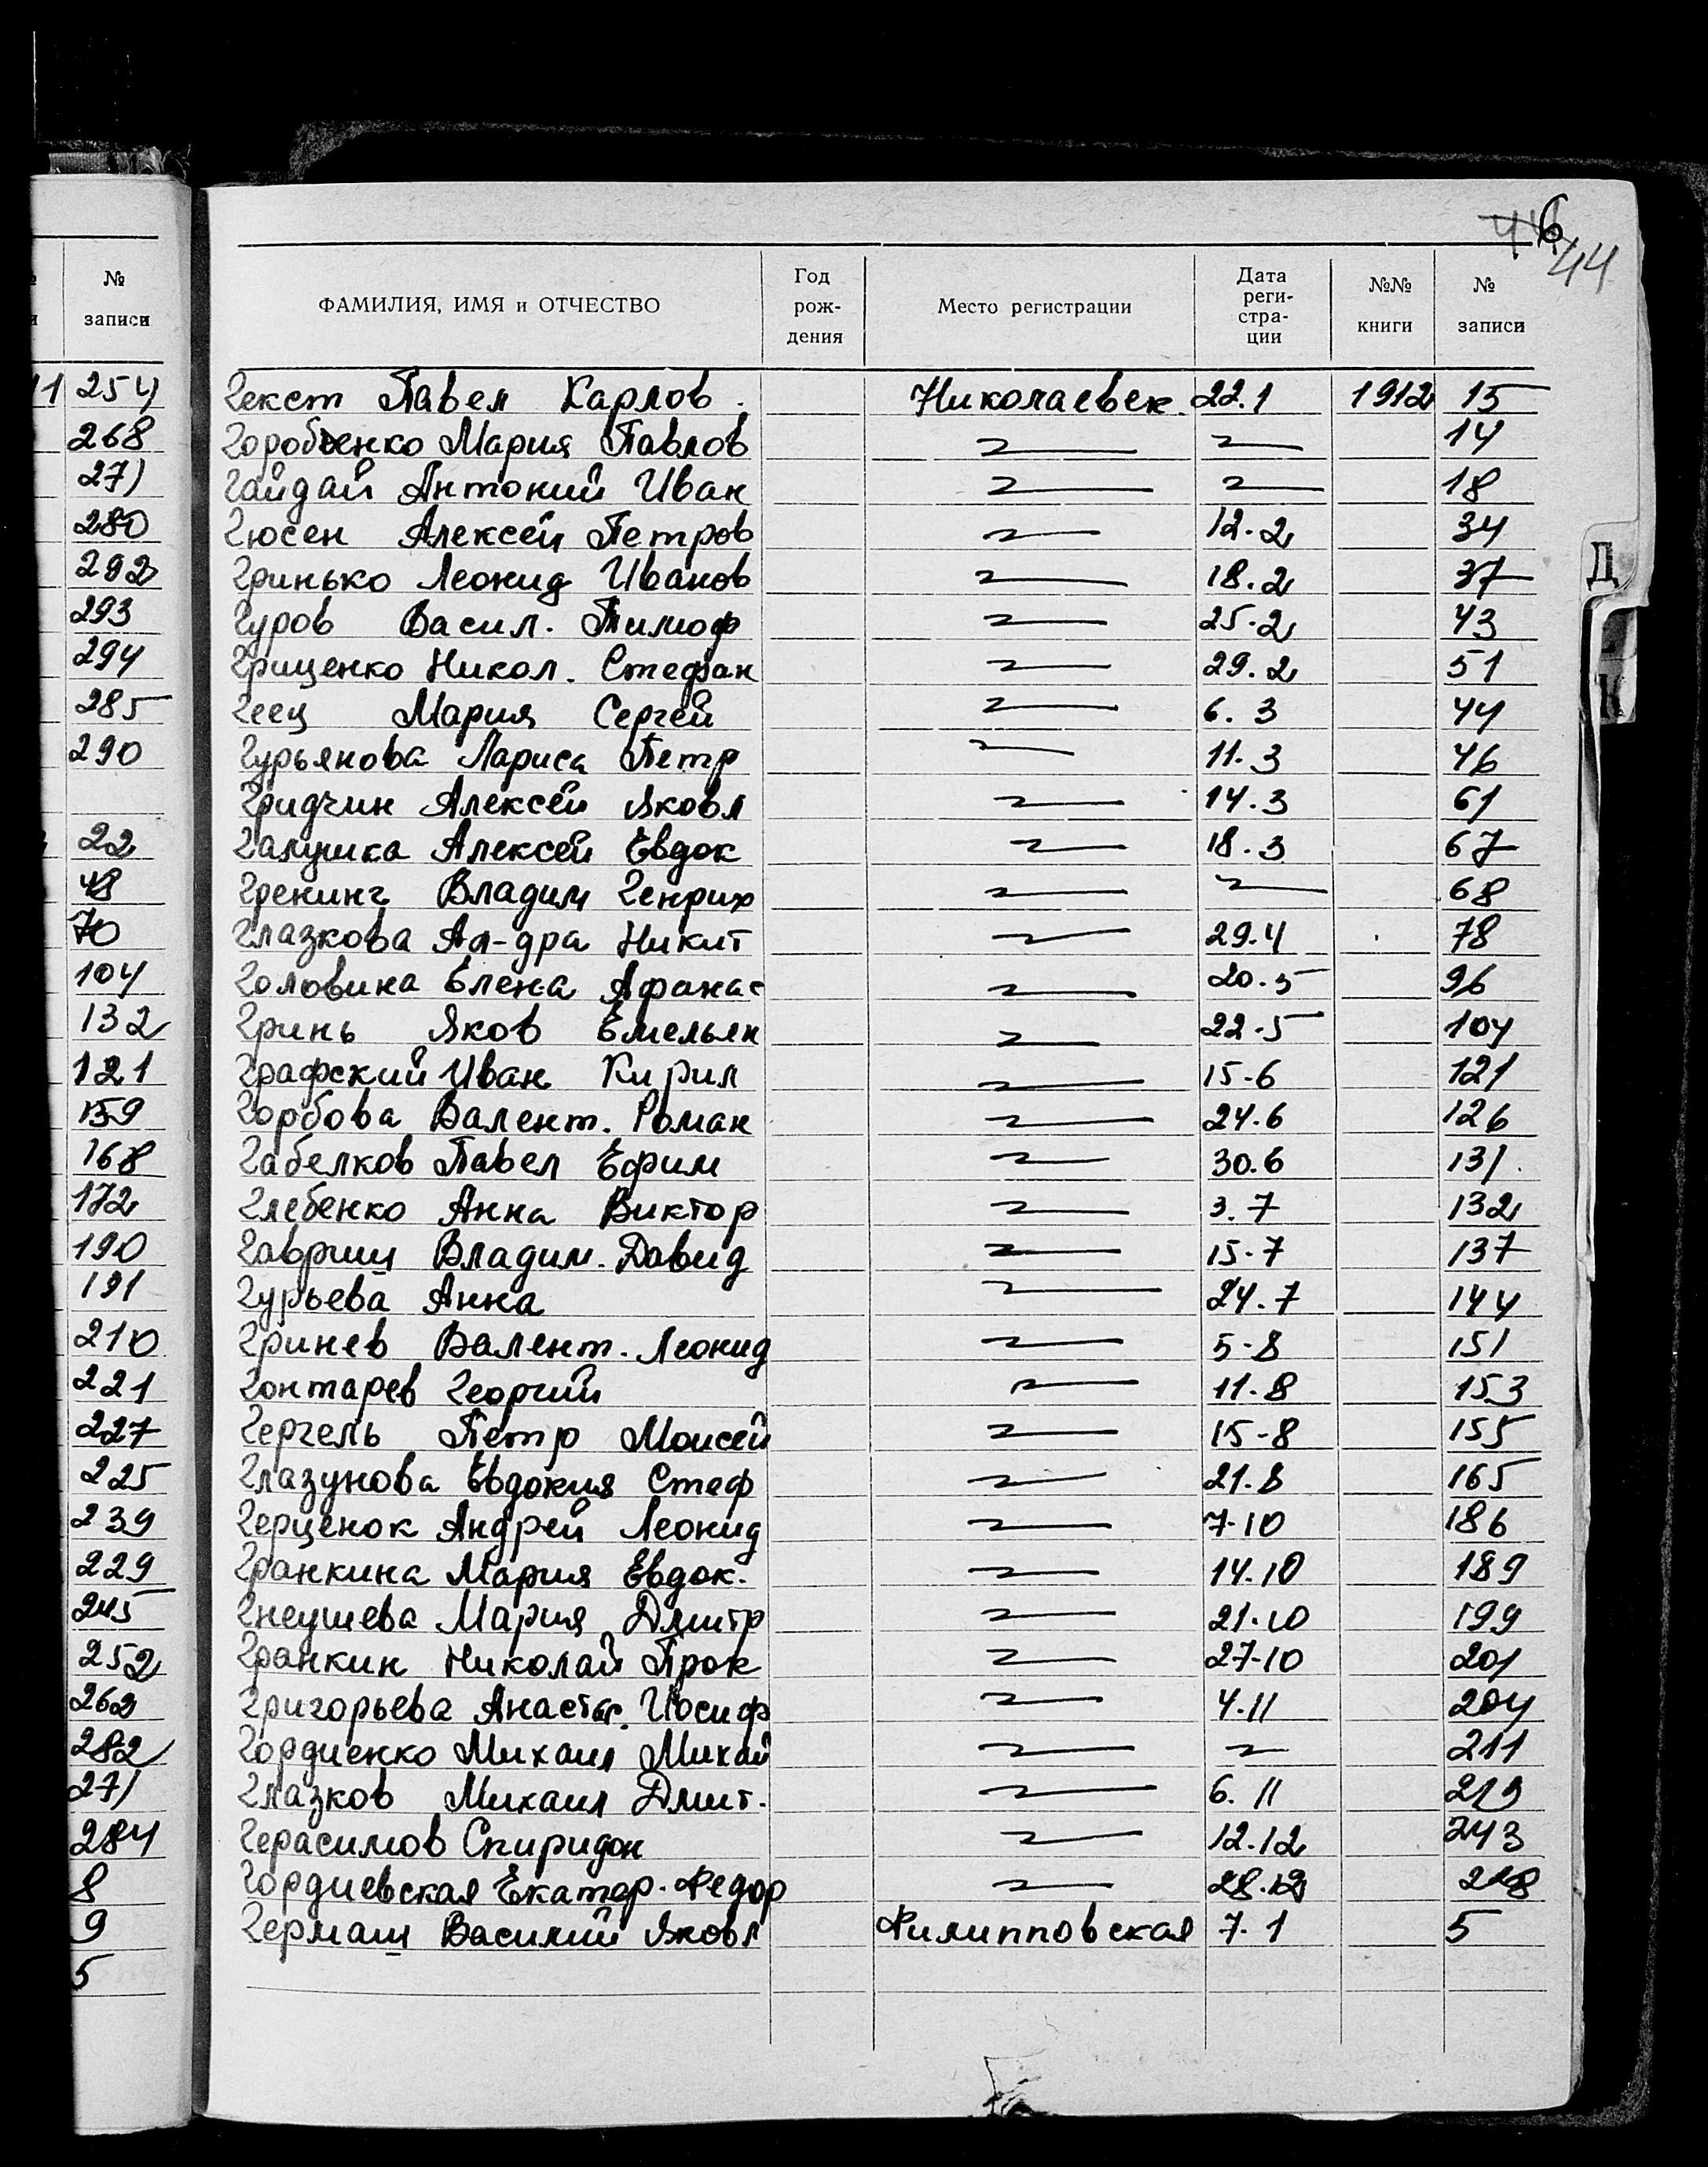 6
44
№ записи
ФАМИЛИЯ, ИМЯ и ОТЧЕСТВО Год рож-дения Место регистрации Дата реги-стра-ции №№ книги № записи
11 254
268
271
280
292
293
294
285
290
22
48
70
104
132
121
159
168
172
190
191
210
221
227
225
239
229
245
252
262
282
271
284
8
9
5
Гекст Павел Карлов. Николаевск. 22.1 1912 15
Горобченко Мария Павлов 14
Гайдай Антоний Иван 18
Гюсен Алексей Петров 12.2 34
Гринько Леонид Иванов 18.2 37
Гуров Васил. Тимоф 25.2 43
Гриценко Никол. Стефан 29.2 51
Геец Мария Сергей 6.3 44
Гурьянова Лариса Петр 11.3 46
Гридчин Алексей Яковл 14.3 61
Галушка Алексей Евдок 18.3 67
Гренинг Владим Генрих 68
Глазкова Ал-дра Никит 29.4 78
Головина Елена Афанас 20.5 96
Гринь Яков Емельян 22.5 104
Графский Иван Кирил 15-6 121
Горбова Валент. Роман 24.6 126
Габелков Павел Ефим 30.6 131.
Глебенко Анна Виктор 3.7 132
Гавриш Владим. Давид 15-7 137
Гурьева Анна 24.7 144
Гринев Валент. Леонид 5-8 151
Гонтарев Георгий 11.8 153
Гергель Петр Моисей 15-8 155
Глазунова Евдокия Стеф 21.8 165
Герценок Андрей Леонид 7-10 186
Гранкина Мария Евдок. 14.10 189
Гнеушева Мария Дмитр 21.10 199
Гранкин Николай Прок 27-10 201
Григорьева Анастас. Иосиф 4.11 204
Гордиенко Михаил Михай 211
Глазков Михаил Дмит. 6.11 219
Герасимов Спиридон 12.12 243
Гордиевская Екатер. Федор 28.12
Гермаш Василий Яковл Филипповская 7.1 5
Д
К